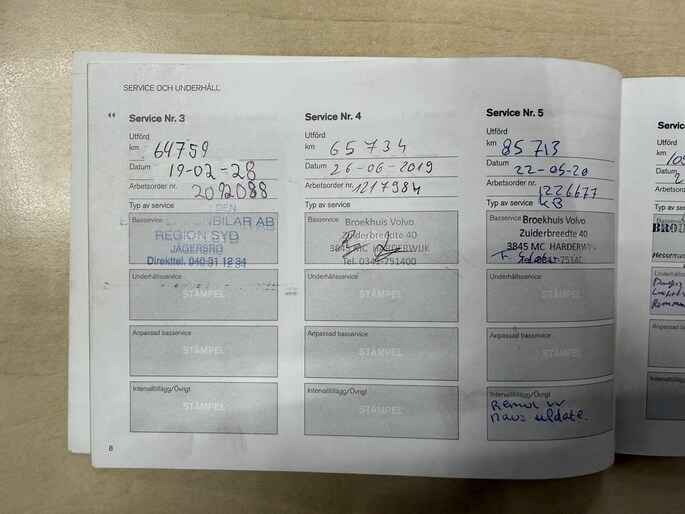 SERVICE OCH UNDERHÅLL
Service Nr. 3
Utförd
km 64759
Datum 19-02-28
Arbetsorder nr. 2092088
Typ av service
Basservice
BILAR AB
REGION SYD
JÄGERSRO
Direkttel. 040-31 12 34
Underhållsservice
STÄMPEL
Anpassad basservice
STÄMPEL
Intervalltillägg/Övrigt
STÄMPEL
8
Service Nr. 4
Utförd
km 65734
Datum 26-06-2019
Arbetsorder nr. 1217984
Typ av service
Basservice
Broekhuis Volvo
Zuiderbreedte 40
3845 MC HARDERWIJK
Tel. 0341-751400
Underhållsservice
STÄMPEL
Anpassad basservice
STÄMPEL
Intervalltillägg/Övrigt
STÄMPEL
Service Nr. 5
Utförd
km 85713
Datum 22-05-20
Arbetsorder nr. 1226677
Typ av service KB
Basservice
Broekhuis Volvo
Zuiderbreedte 40
3845 MC HARDERWIJK
Underhållsservice
STÄMPEL
Anpassad basservice
STÄMPEL
Intervalltillägg/Övrigt
Utförd
km
Datum
Arbetsorder
Typ av service
Basservice
Underhållsservice
Anpassad
Intervalltillägg